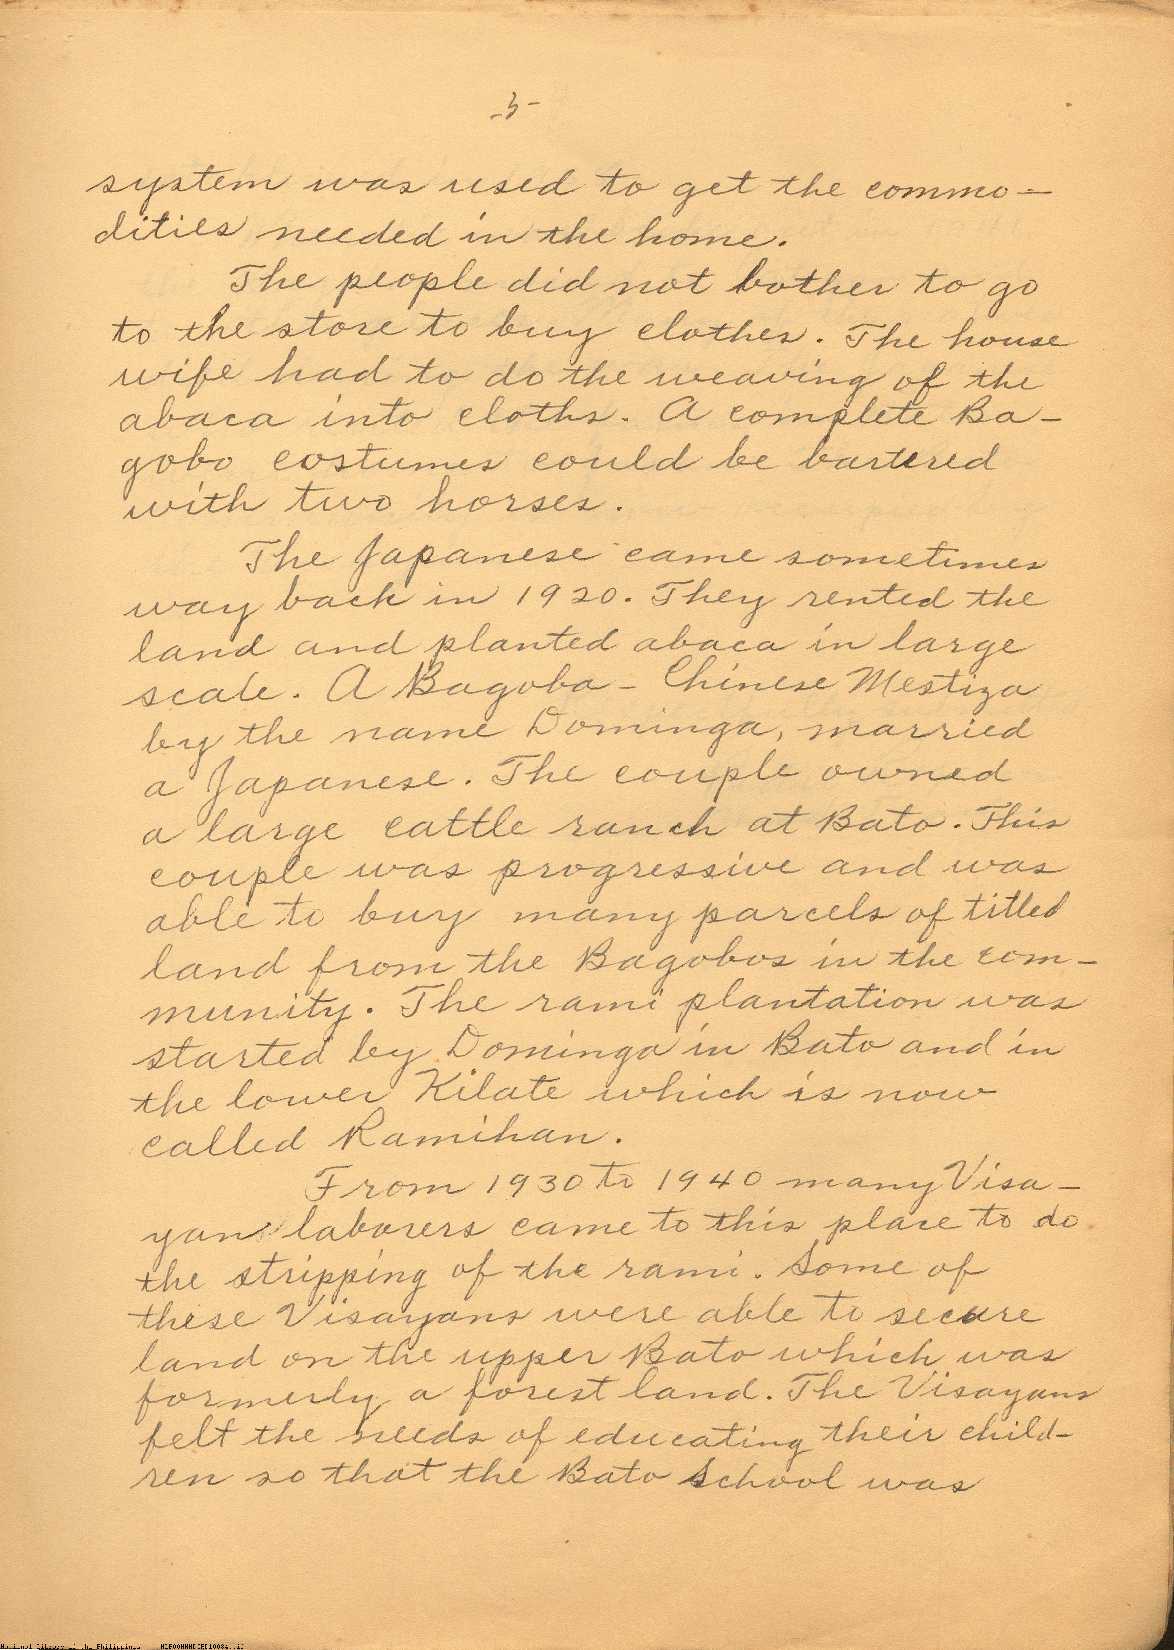 -3-
system was used to get the commo-
dities needed in the home.
The people did not bother to go
to the store to buy clothes. The house
wife had to do the weaving of the
abaca into cloths. A complete Ba-
gobo costumes could be bartered
with two horses.
The Japanese came sometimes
way back in 1920. They rented the
land and planted abaca in large
scale. A Bagoba - Chinese Mestiza
by the name Dominga, married
a Japanese. The couple owned
a large cattle ranch at Bato. This
couple was progressive and was
able to buy many parcels of titled
land from the Bagobos in the com-
munity. The rami plantation was
started by Dominga in Bato and in
the lower Kilate which is now
called Ramihan.
From 1930 to 1940 many Visa-
yan laborers came to this place to do
the stripping of the rami. Some of
these Visayans were able to secure
land on the upper Bato which was
formerly a forest land. The Visayans
felt the needs of educating their child-
ren so that the Bato School was
National Library of the Philippines